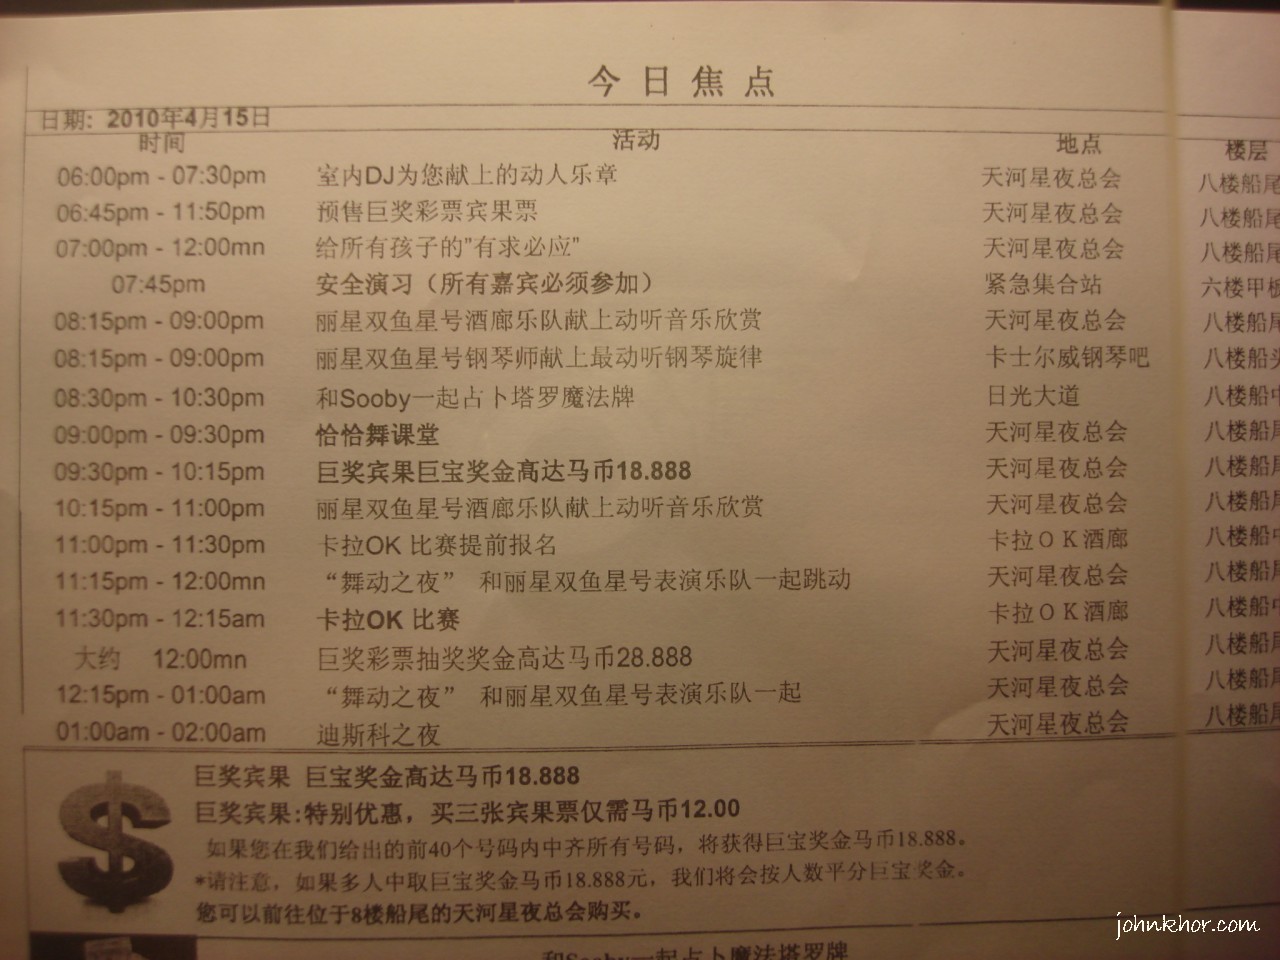 今日焦点
日期: 2010年4月15日
时间 活动 地点 楼层
06:00pm - 07:30pm 室内DJ为您献上的动人乐章 天河星夜总会 八楼船尾
06:45pm - 11:50pm 预售巨奖彩票宾果票 天河星夜总会 八楼船尾
07:00pm - 12:00mn 给所有孩子的"有求必应" 天河星夜总会 八楼船尾
07:45pm 安全演习（所有嘉宾必须参加） 紧急集合站 六楼甲板
08:15pm - 09:00pm 丽星双鱼星号酒廊乐队献上动听音乐欣赏 天河星夜总会 八楼船尾
08:15pm - 09:00pm 丽星双鱼星号钢琴师献上最动听钢琴旋律 卡士尔威钢琴吧 八楼船头
08:30pm - 10:30pm 和Sooby一起占卜塔罗魔法牌 日光大道 八楼船中
09:00pm - 09:30pm 恰恰舞课堂 天河星夜总会 八楼船尾
09:30pm - 10:15pm 巨奖宾果巨宝奖金高达马币18.888 天河星夜总会 八楼船尾
10:15pm - 11:00pm 丽星双鱼星号酒廊乐队献上动听音乐欣赏 天河星夜总会 八楼船尾
11:00pm - 11:30pm 卡拉OK 比赛提前报名 卡拉ＯＫ酒廊 八楼船中
11:15pm - 12:00mn “舞动之夜” 和丽星双鱼星号表演乐队一起跳动 天河星夜总会 八楼船尾
11:30pm - 12:15am 卡拉OK 比赛 卡拉ＯＫ酒廊 八楼船中
大约 12:00mn 巨奖彩票抽奖奖金高达马币28.888 天河星夜总会 八楼船尾
12:15pm - 01:00am “舞动之夜” 和丽星双鱼星号表演乐队一起 天河星夜总会 八楼船尾
01:00am - 02:00am 迪斯科之夜 天河星夜总会 八楼船尾
巨奖宾果 巨宝奖金高达马币18.888
巨奖宾果:特别优惠，买三张宾果票仅需马币12.00
如果您在我们给出的前40个号码内中齐所有号码，将获得巨宝奖金马币18.888。
*请注意，如果多人中取巨宝奖金马币18.888元，我们将会按人数平分巨宝奖金。
您可以前往位于8楼船尾的天河星夜总会购买。
和Sooby一起占卜魔法塔罗牌
johnkhor.com